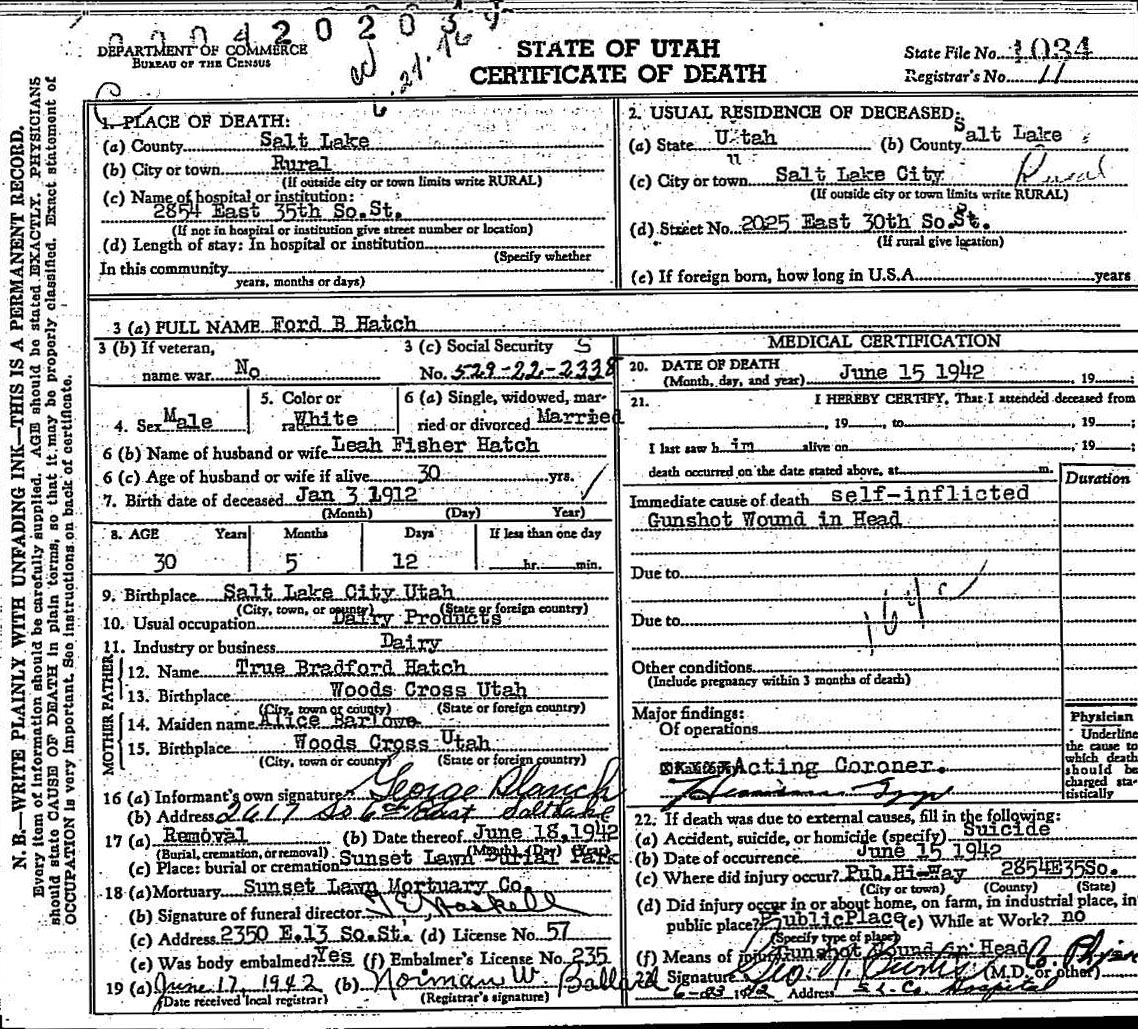 2 0 2 0
DEPARTMENT OF COMMERCE
BUREAU OF THE CENSUS
STATE OF UTAH
CERTIFICATE OF DEATH
State File No. 1034
Registrar's No. 11
N. B.—WRITE PLAINLY WITH UNFADING INK—THIS IS A PERMANENT RECORD.
Every item of information should be carefully supplied. AGE should be stated EXACTLY. PHYSICIANS
should state CAUSE OF DEATH in plain terms, so that it may be properly classified. Exact statement of
OCCUPATION is very important. See instructions on back of certificate.
1. PLACE OF DEATH:
(a) County Salt Lake
(b) City or town Rural
(If outside city or town limits write RURAL)
(c) Name of hospital or institution:
2854 East 35th So.St.
(If not in hospital or institution give street number or location)
(d) Length of stay: In hospital or institution
(Specify whether
In this community
years, months or days)
2. USUAL RESIDENCE OF DECEASED:
(a) State Utah (b) County Salt Lake
(c) City or town Salt Lake City Rural
(If outside city or town limits write RURAL)
(d) Street No. 2025 East 30th So.St.
(If rural give location)
(e) If foreign born, how long in U.S.A. years
3 (a) FULL NAME Ford B Hatch
3 (b) If veteran,
name war No
3 (c) Social Security
No. 529-22-2338
4. Sex Male
5. Color or
race White
6 (a) Single, widowed, mar-
ried or divorced Married
6 (b) Name of husband or wife Leah Fisher Hatch
6 (c) Age of husband or wife if alive 30 yrs.
7. Birth date of deceased Jan 3 1912
(Month) (Day) Year)
8. AGE Years Months Days If less than one day
30 5 12 hr. min.
9. Birthplace Salt Lake City Utah
(City, town, or county) (State or foreign country)
10. Usual occupation Dairy Products
11. Industry or business Dairy
FATHER
12. Name True Bradford Hatch
13. Birthplace Woods Cross Utah
(City, town or county) (State or foreign country)
MOTHER
14. Maiden name Alice Barlowe
15. Birthplace Woods Cross Utah
(City, town or county) (State or foreign country)
16 (a) Informant's own signature George Blanch
(b) Address 2617 So 6th East Salt Lake
17 (a) Removal (b) Date thereof June 18,1942
(Burial, cremation, or removal) (Month) (Day) (Year)
(c) Place: burial or cremation Sunset Lawn Burial Park
18 (a) Mortuary Sunset Lawn Mortuary Co.
(b) Signature of funeral director
(c) Address 2350 E.13 So.St. (d) License No. 57
(e) Was body embalmed? Yes (f) Embalmer's License No. 235
19 (a) June 17, 1942 (b) Norman W. Ballard
(Date received local registrar) (Registrar's signature)
MEDICAL CERTIFICATION
20. DATE OF DEATH
(Month, day, and year) June 15 1942, 19 ;
21. I HEREBY CERTIFY, That I attended deceased from
, 19 , to , 19 ;
I last saw h im alive on , 19 ;
death occurred on the date stated above, at m.
Duration
Immediate cause of death self-inflicted
Gunshot Wound in Head
Due to
Due to
Other conditions
(Include pregnancy within 3 months of death)
Major findings:
Of operations
Acting Coroner.
Physician
Underline
the cause to
which death
should be
charged sta-
tistically
22. If death was due to external causes, fill in the following:
(a) Accident, suicide, or homicide (specify) Suicide
(b) Date of occurrence June 15 1942
(c) Where did injury occur? Pub.Hi-Way 2854E35So.
(City or town) (County) (State)
(d) Did injury occur in or about home, on farm, in industrial place, in
public place? PublicPlace (e) While at Work? no
(Specify type of place)
(f) Means of injury Gunshot Wound in Head
Signature (M.D. or other)
Address S L Co Hospital